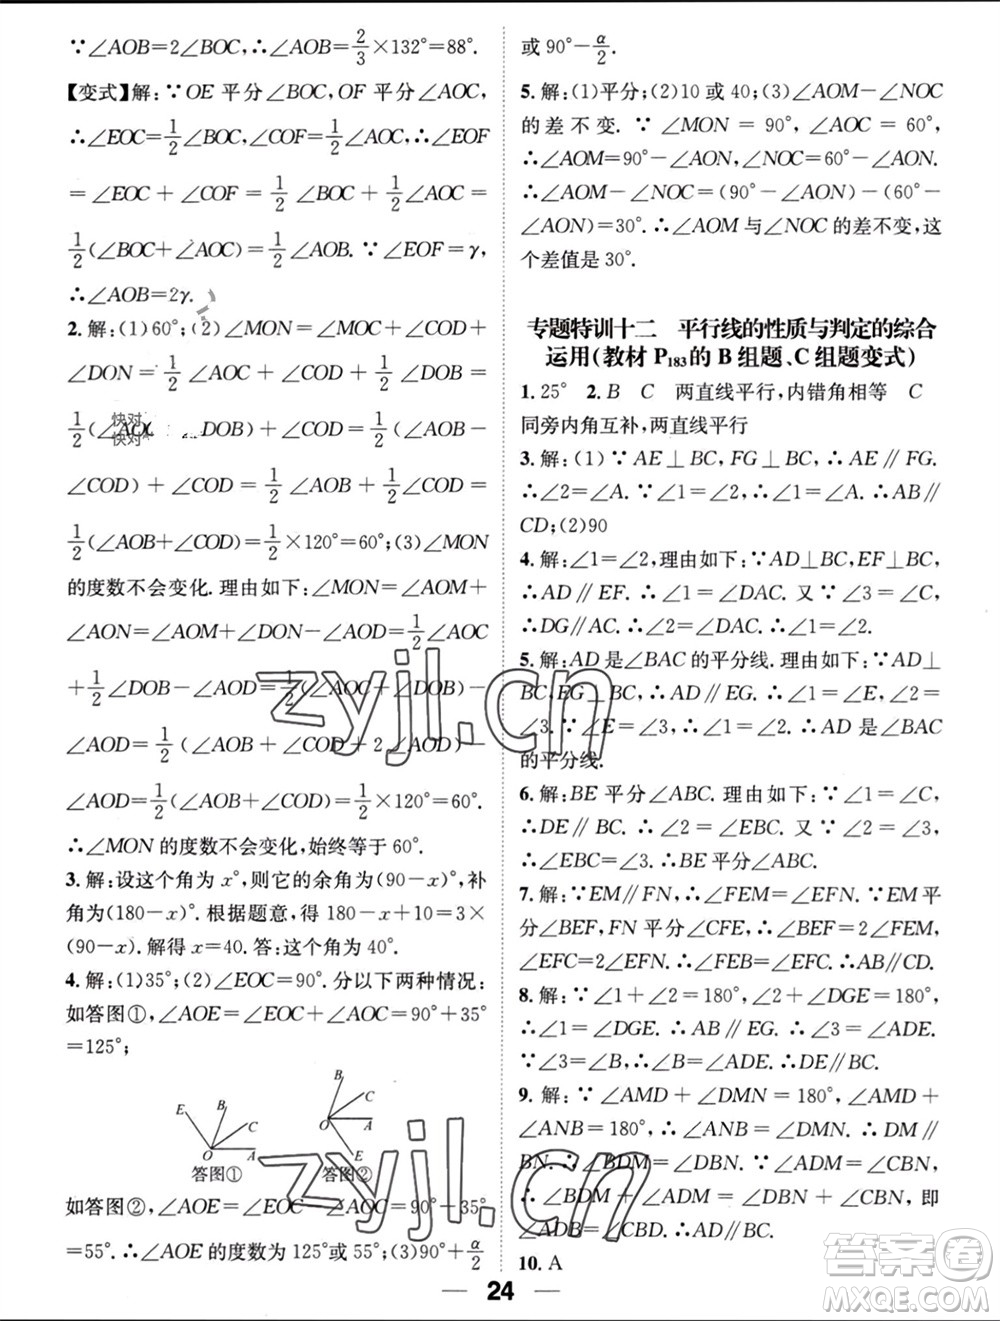 ∵∠AOB=2∠BOC,∴∠AOB=2/3×132°=88°.
【变式】解:∵OE平分∠BOC,OF平分∠AOC,
∴∠EOC=1/2∠BOC,∠COF=1/2∠AOC,∴∠EOF
=∠EOC+∠COF=1/2∠BOC+1/2∠AOC=
1/2(∠BOC+∠AOC)=1/2∠AOB.∵∠EOF=γ,
∴∠AOB=2γ.
2.解:(1)60°;(2)∠MON=∠MOC+∠COD+
∠DON=1/2∠AOC+∠COD+1/2∠DOB=
1/2(∠AOC DOB)+∠COD=1/2(∠AOB-
∠COD)+∠COD=1/2∠AOB+1/2∠COD=
1/2(∠AOB+∠COD)=1/2×120°=60°;(3)∠MON
的度数不会变化.理由如下:∠MON=∠AOM+
∠AON=∠AOM+∠DON-∠AOD=1/2∠AOC
+1/2∠DOB-∠AOD=1/2(∠AOC+∠DOB)-
∠AOD=1/2(∠AOB+∠COD+2∠AOD)-
∠AOD=1/2(∠AOB+∠COD)=1/2×120°=60°.
∴∠MON的度数不会变化,始终等于60°.
3.解:设这个角为x°,则它的余角为(90-x)°,补
角为(180-x)°.根据题意,得180-x+10=3×
(90-x).解得x=40.答:这个角为40°.
4.解:(1)35°;(2)∠EOC=90°.分以下两种情况:
如答图①,∠AOE=∠EOC+∠AOC=90°+35°
=125°;
E B C O A
答图①
B C O A E
答图②
如答图②,∠AOE=∠EOC-∠AOC=90°-35°
=55°.∴∠AOE的度数为125°或55°;(3)90°+α/2
或90°-α/2.
5.解:(1)平分;(2)10或40;(3)∠AOM-∠NOC
的差不变.∵∠MON=90°,∠AOC=60°,
∴∠AOM=90°-∠AON,∠NOC=60°-∠AON.
∴∠AOM-∠NOC=(90°-∠AON)-(60°-
∠AON)=30°.∴∠AOM与∠NOC的差不变,这
个差值是30°.
专题特训十二 平行线的性质与判定的综合
运用(教材P183的B组题、C组题变式)
1.25° 2.B C 两直线平行,内错角相等 C
同旁内角互补,两直线平行
3.解:(1)∵AE⊥BC,FG⊥BC,∴AE∥FG.
∴∠2=∠A.∵∠1=∠2,∴∠1=∠A.∴AB∥
CD;(2)90
4.解:∠1=∠2,理由如下:∵AD⊥BC,EF⊥BC,
∴AD∥EF.∴∠1=∠DAC.又∵∠3=∠C,
∴DG∥AC.∴∠2=∠DAC.∴∠1=∠2.
5.解:AD是∠BAC的平分线.理由如下:∵AD⊥
BC,EG⊥BC,∴AD∥EG.∴∠1=∠E,∠2=
∠3.∵∠E=∠3,∴∠1=∠2.∴AD是∠BAC
的平分线.
6.解:BE平分∠ABC.理由如下:∵∠1=∠C,
∴DE∥BC.∴∠2=∠EBC.又∵∠2=∠3,
∴∠EBC=∠3.∴BE平分∠ABC.
7.解:∵EM∥FN,∴∠FEM=∠EFN.∵EM平
分∠BEF,FN平分∠CFE,∴∠BEF=2∠FEM,
∠EFC=2∠EFN.∴∠FEB=∠EFC.∴AB∥CD.
8.解:∵∠1+∠2=180°,∠2+∠DGE=180°,
∴∠1=∠DGE.∴AB∥EG.∴∠3=∠ADE.
∵∠3=∠B,∴∠B=∠ADE.∴DE∥BC.
9.解:∵∠AMD+∠DMN=180°,∠AMD+
∠ANB=180°,∴∠ANB=∠DMN.∴DM∥
BN.∴∠BDM=∠DBN.∵∠ADM=∠CBN,
∴∠BDM+∠ADM=∠DBN+∠CBN,即
∠ADB=∠CBD.∴AD∥BC.
10.A
24
快对
快对
zyjl.cn
zyjl.cn
答案圈
MXQE.COM